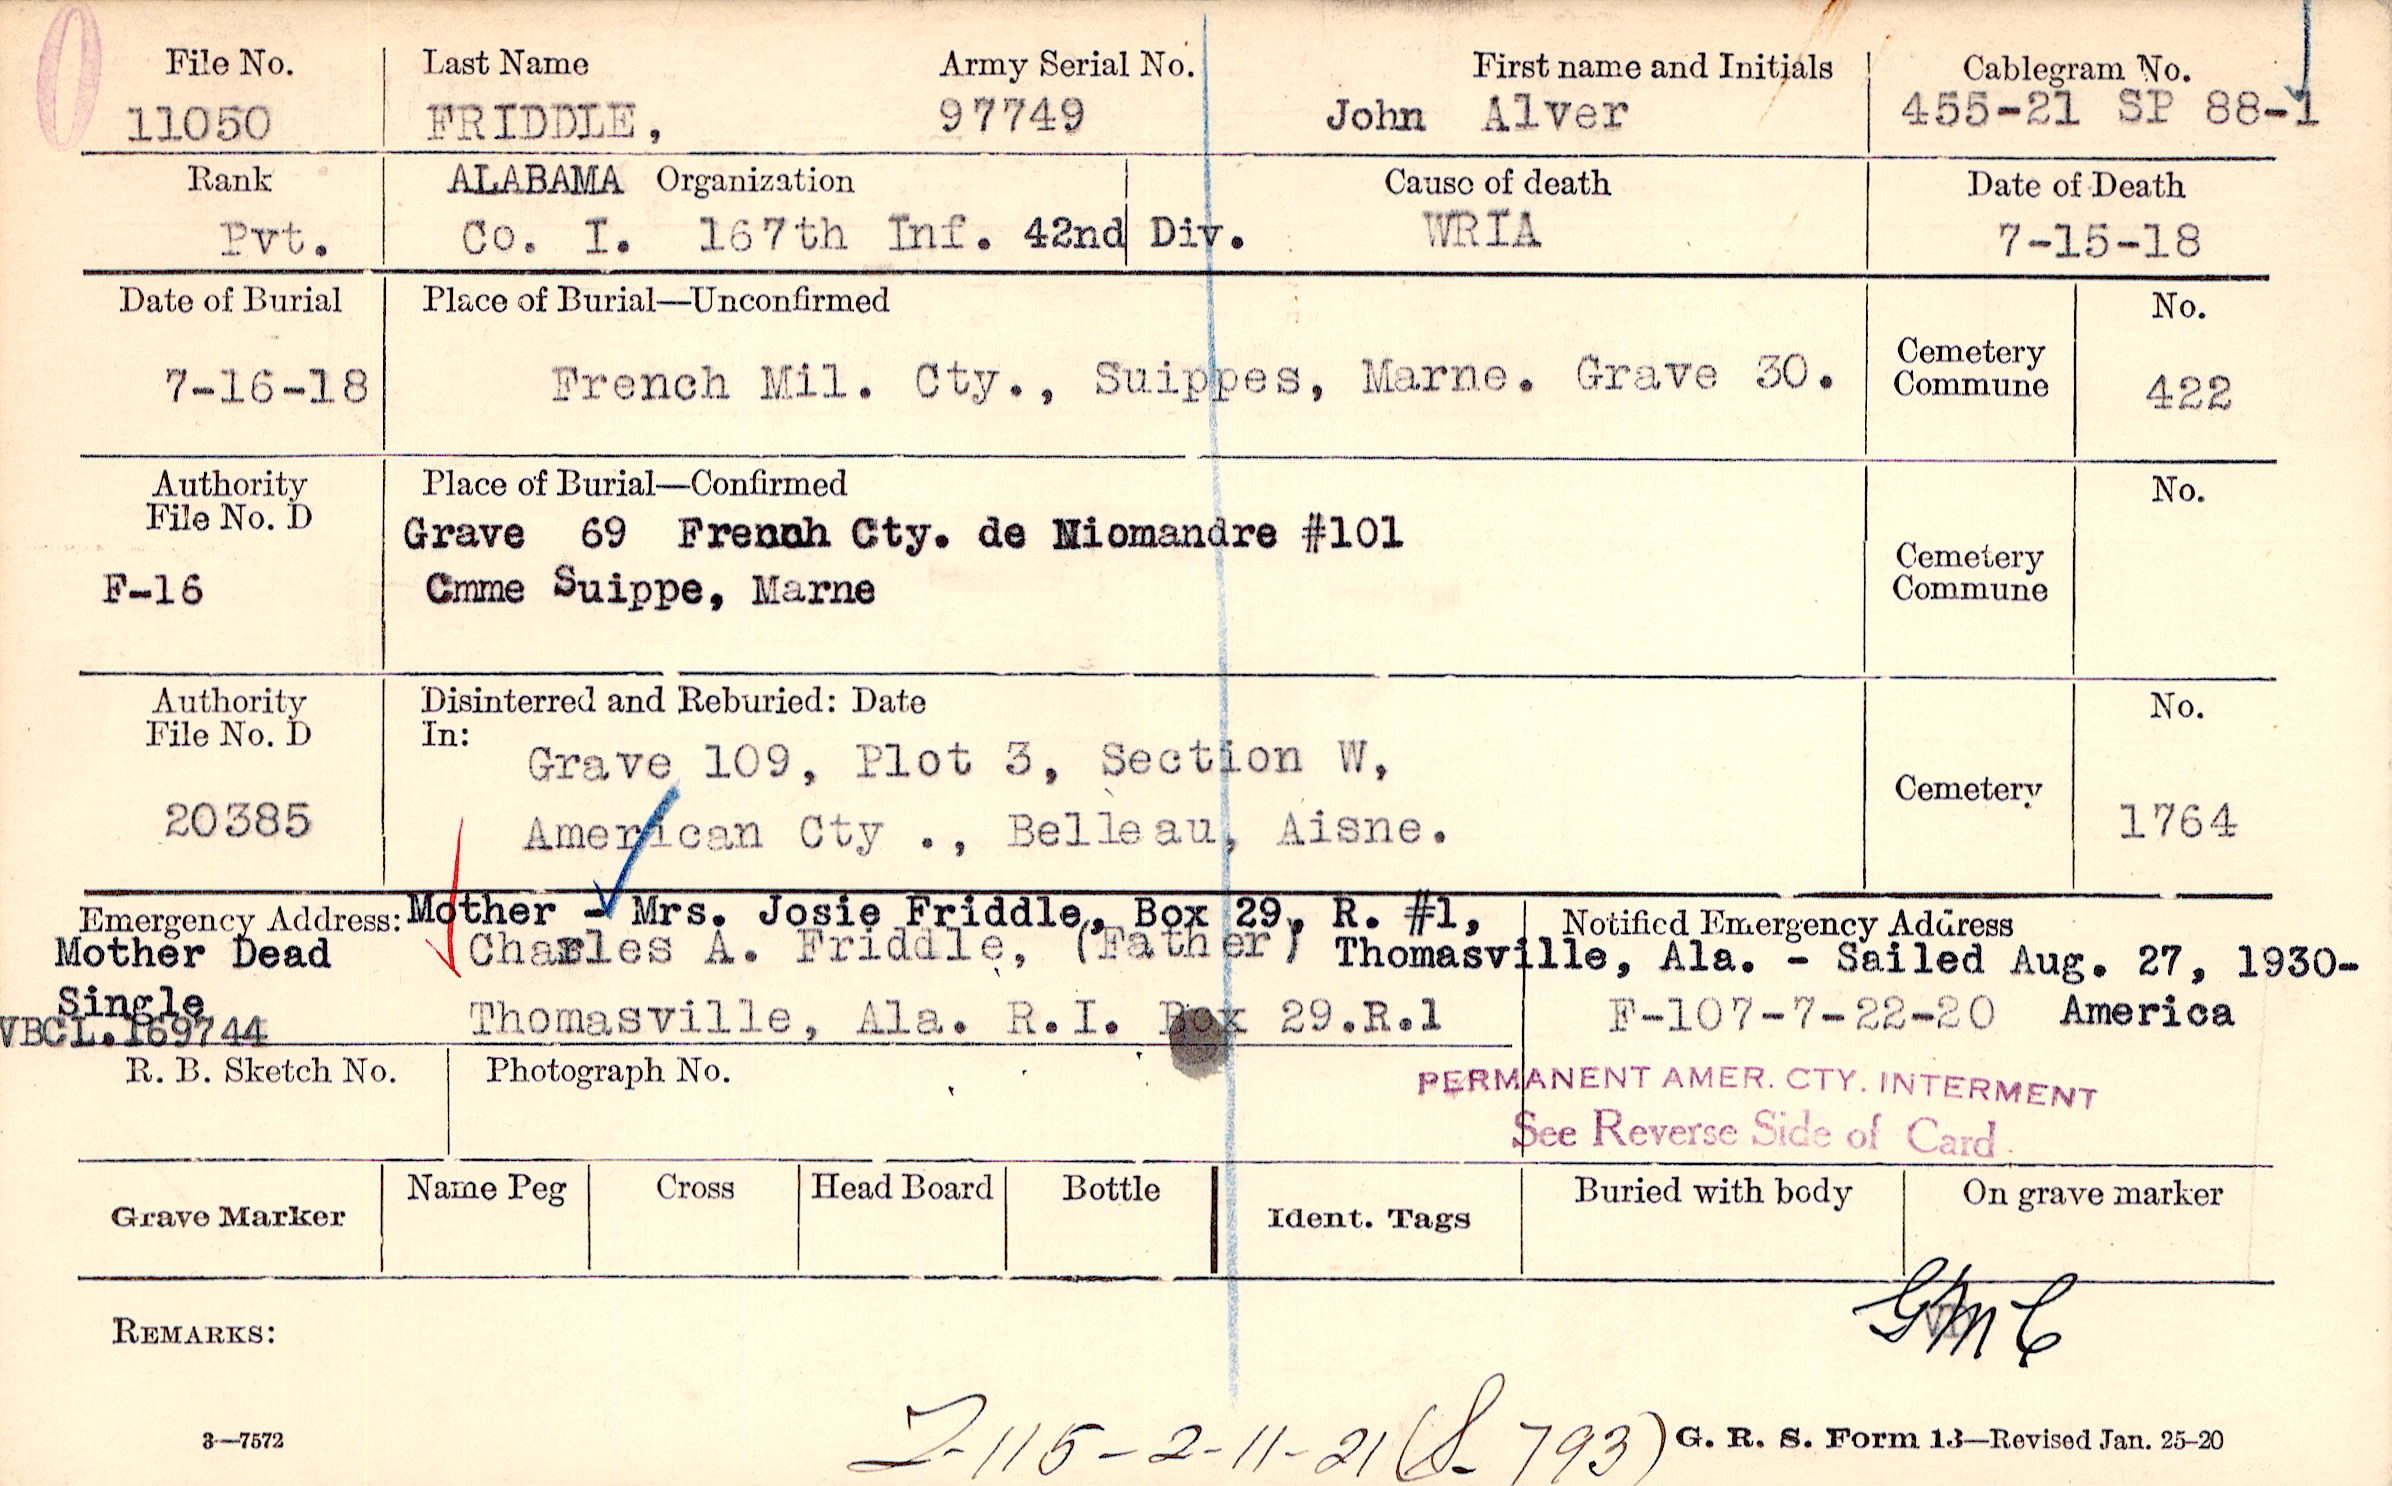 File No. Last Name Army Serial No. First name and Initials Cablegram No.
11050 FRIDDLE, 97749 John Alver 455-21 SP 88-1
Rank ALABAMA Organization Cause of death Date of Death
Pvt. Co. I. 167th Inf. 42nd Div. WRIA 7-15-18
Date of Burial Place of Burial—Unconfirmed No.
7-16-18 French Mil. Cty., Suippes, Marne. Grave 30. Cemetery
Commune 422
Authority
File No. D Place of Burial—Confirmed No.
Grave 69 French Cty. de Niomandre #101
F-16 Cmme Suippe, Marne Cemetery
Commune
Authority
File No. D Disinterred and Reburied: Date No.
In:
Grave 109, Plot 3, Section W,
20385 American Cty ., Belleau, Aisne. Cemetery 1764
Emergency Address: Mother - Mrs. Josie Friddle, Box 29, R. #1, Notified Emergency Address
Mother Dead Charles A. Friddle, (Father) Thomasville, Ala. - Sailed Aug. 27, 1930-
Single Thomasville, Ala. R.I. Box 29.R.1 F-107-7-22-20 America
VBCL.169744
R. B. Sketch No. Photograph No.
PERMANENT AMER. CTY. INTERMENT
See Reverse Side of Card
Grave Marker Name Peg Cross Head Board Bottle Ident. Tags Buried with body On grave marker
GMC
REMARKS:
3—7572 115-2-11-21 (S-793) G. R. S. Form 13—Revised Jan. 25-20